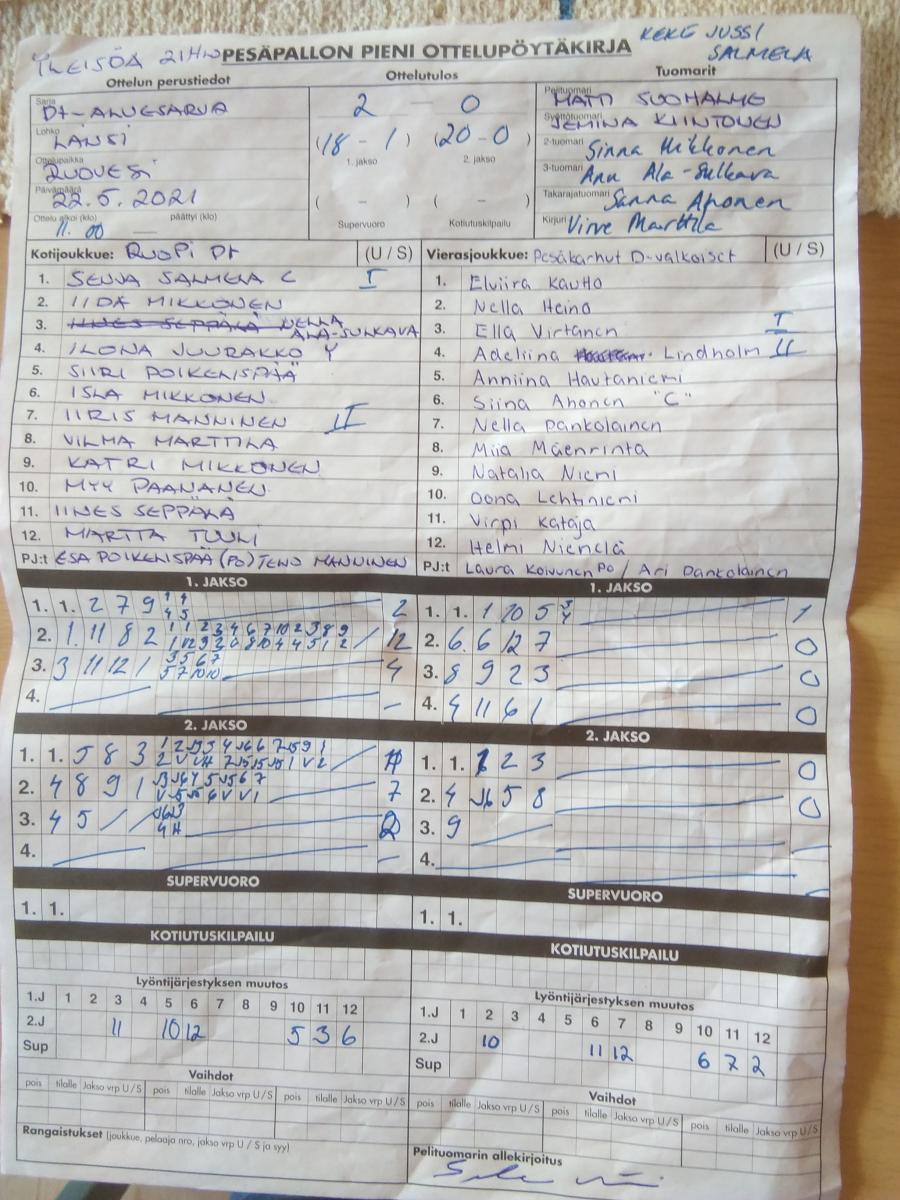 YLEISÖÄ 21 PESÄPALLON PIENI OTTELUPÖYTÄKIRJA KEKE JUSSI
SALMELA
Ottelun perustiedot Ottelutulos Tuomarit
Sarja D+-ALUESARJA 2 — 0 Pelituomari MATTI SUOMALME
Lohko LÄNSI (18 - 1) (20 - 0) Syöttötuomari JEMINA KIINTONEN
1. jakso 2. jakso
Ottelupaikka RUOVESI 2-tuomari Sinna Mikkonen
Päivämäärä 22.5.2021 3-tuomari Anu Ala-Sulkava
( - ) ( - ) Takarajatuomari Sanna Ahonen
Ottelu alkoi (klo) 11.00 päättyi (klo) — Supervuoro Kotiutuskilpailu Kirjuri Virve Marttila
Kotijoukkue: RUOPI D+ (U / S) Vierasjoukkue: Pesäkarhut D-valkoiset (U / S)
1. SENJA SALMELA C I 1. Elviira Kautto
2. IIDA MIKKONEN 2. Nella Heino
3. IINES SEPPÄLÄ NELLA ALA-SULKAVA 3. Ella Virtanen I
4. ILONA JUURAKKO Y 4. Adeliina Lindholm II
5. SIIRI POIKELISPÄÄ 5. Anniina Hautaniemi
6. ISLA MIKKONEN 6. Siina Ahonen "C"
7. IIRIS MANNINEN II 7. Nella Pankolainen
8. VILMA MARTTILA 8. Miia Mäenrinta
9. KATRI MIKKONEN 9. Natalia Niemi
10. MYY PAANANEN 10. Oona Lehtiniemi
11. IINES SEPPÄLÄ 11. Virpi Kataja
12. MARTTA TUULI 12. Helmi Niemelä
PJ:t ESA POIKELISPÄÄ (PO) TENO MANNINEN PJ:t Laura Koivunen PO / Ari Pankolainen
1. JAKSO 1. JAKSO
1. 1. 2 7 9 2 1. 1. 1 10 5 1
2. 1. 11 8 2 12 2. 6. 6 12 7 0
3. 3 11 12 1 4 3. 8 9 2 3 0
4. — 4. 4 11 6 1 0
2. JAKSO 2. JAKSO
1. 1. 5 8 3 11 1. 1. 1 2 3 0
2. 4 8 9 1 7 2. 4 5 8 0
3. 4 5 2 3. 9
4. — 4.
SUPERVUORO SUPERVUORO
1. 1. 1. 1.
KOTIUTUSKILPAILU KOTIUTUSKILPAILU
Lyöntijärjestyksen muutos Lyöntijärjestyksen muutos
1.J 1 2 3 4 5 6 7 8 9 10 11 12 1.J 1 2 3 4 5 6 7 8 9 10 11 12
2.J 11 10 12 5 3 6 2.J 10 11 12 6 7 2
Sup Sup
Vaihdot Vaihdot
pois tilalle Jakso vrp U / S pois tilalle Jakso vrp U / S pois tilalle Jakso vrp U / S pois tilalle Jakso vrp U / S pois tilalle Jakso vrp U / S pois tilalle Jakso vrp U / S
Rangaistukset (joukkue, pelaaja nro, jakso vrp U / S ja syy) Pelituomarin allekirjoitus